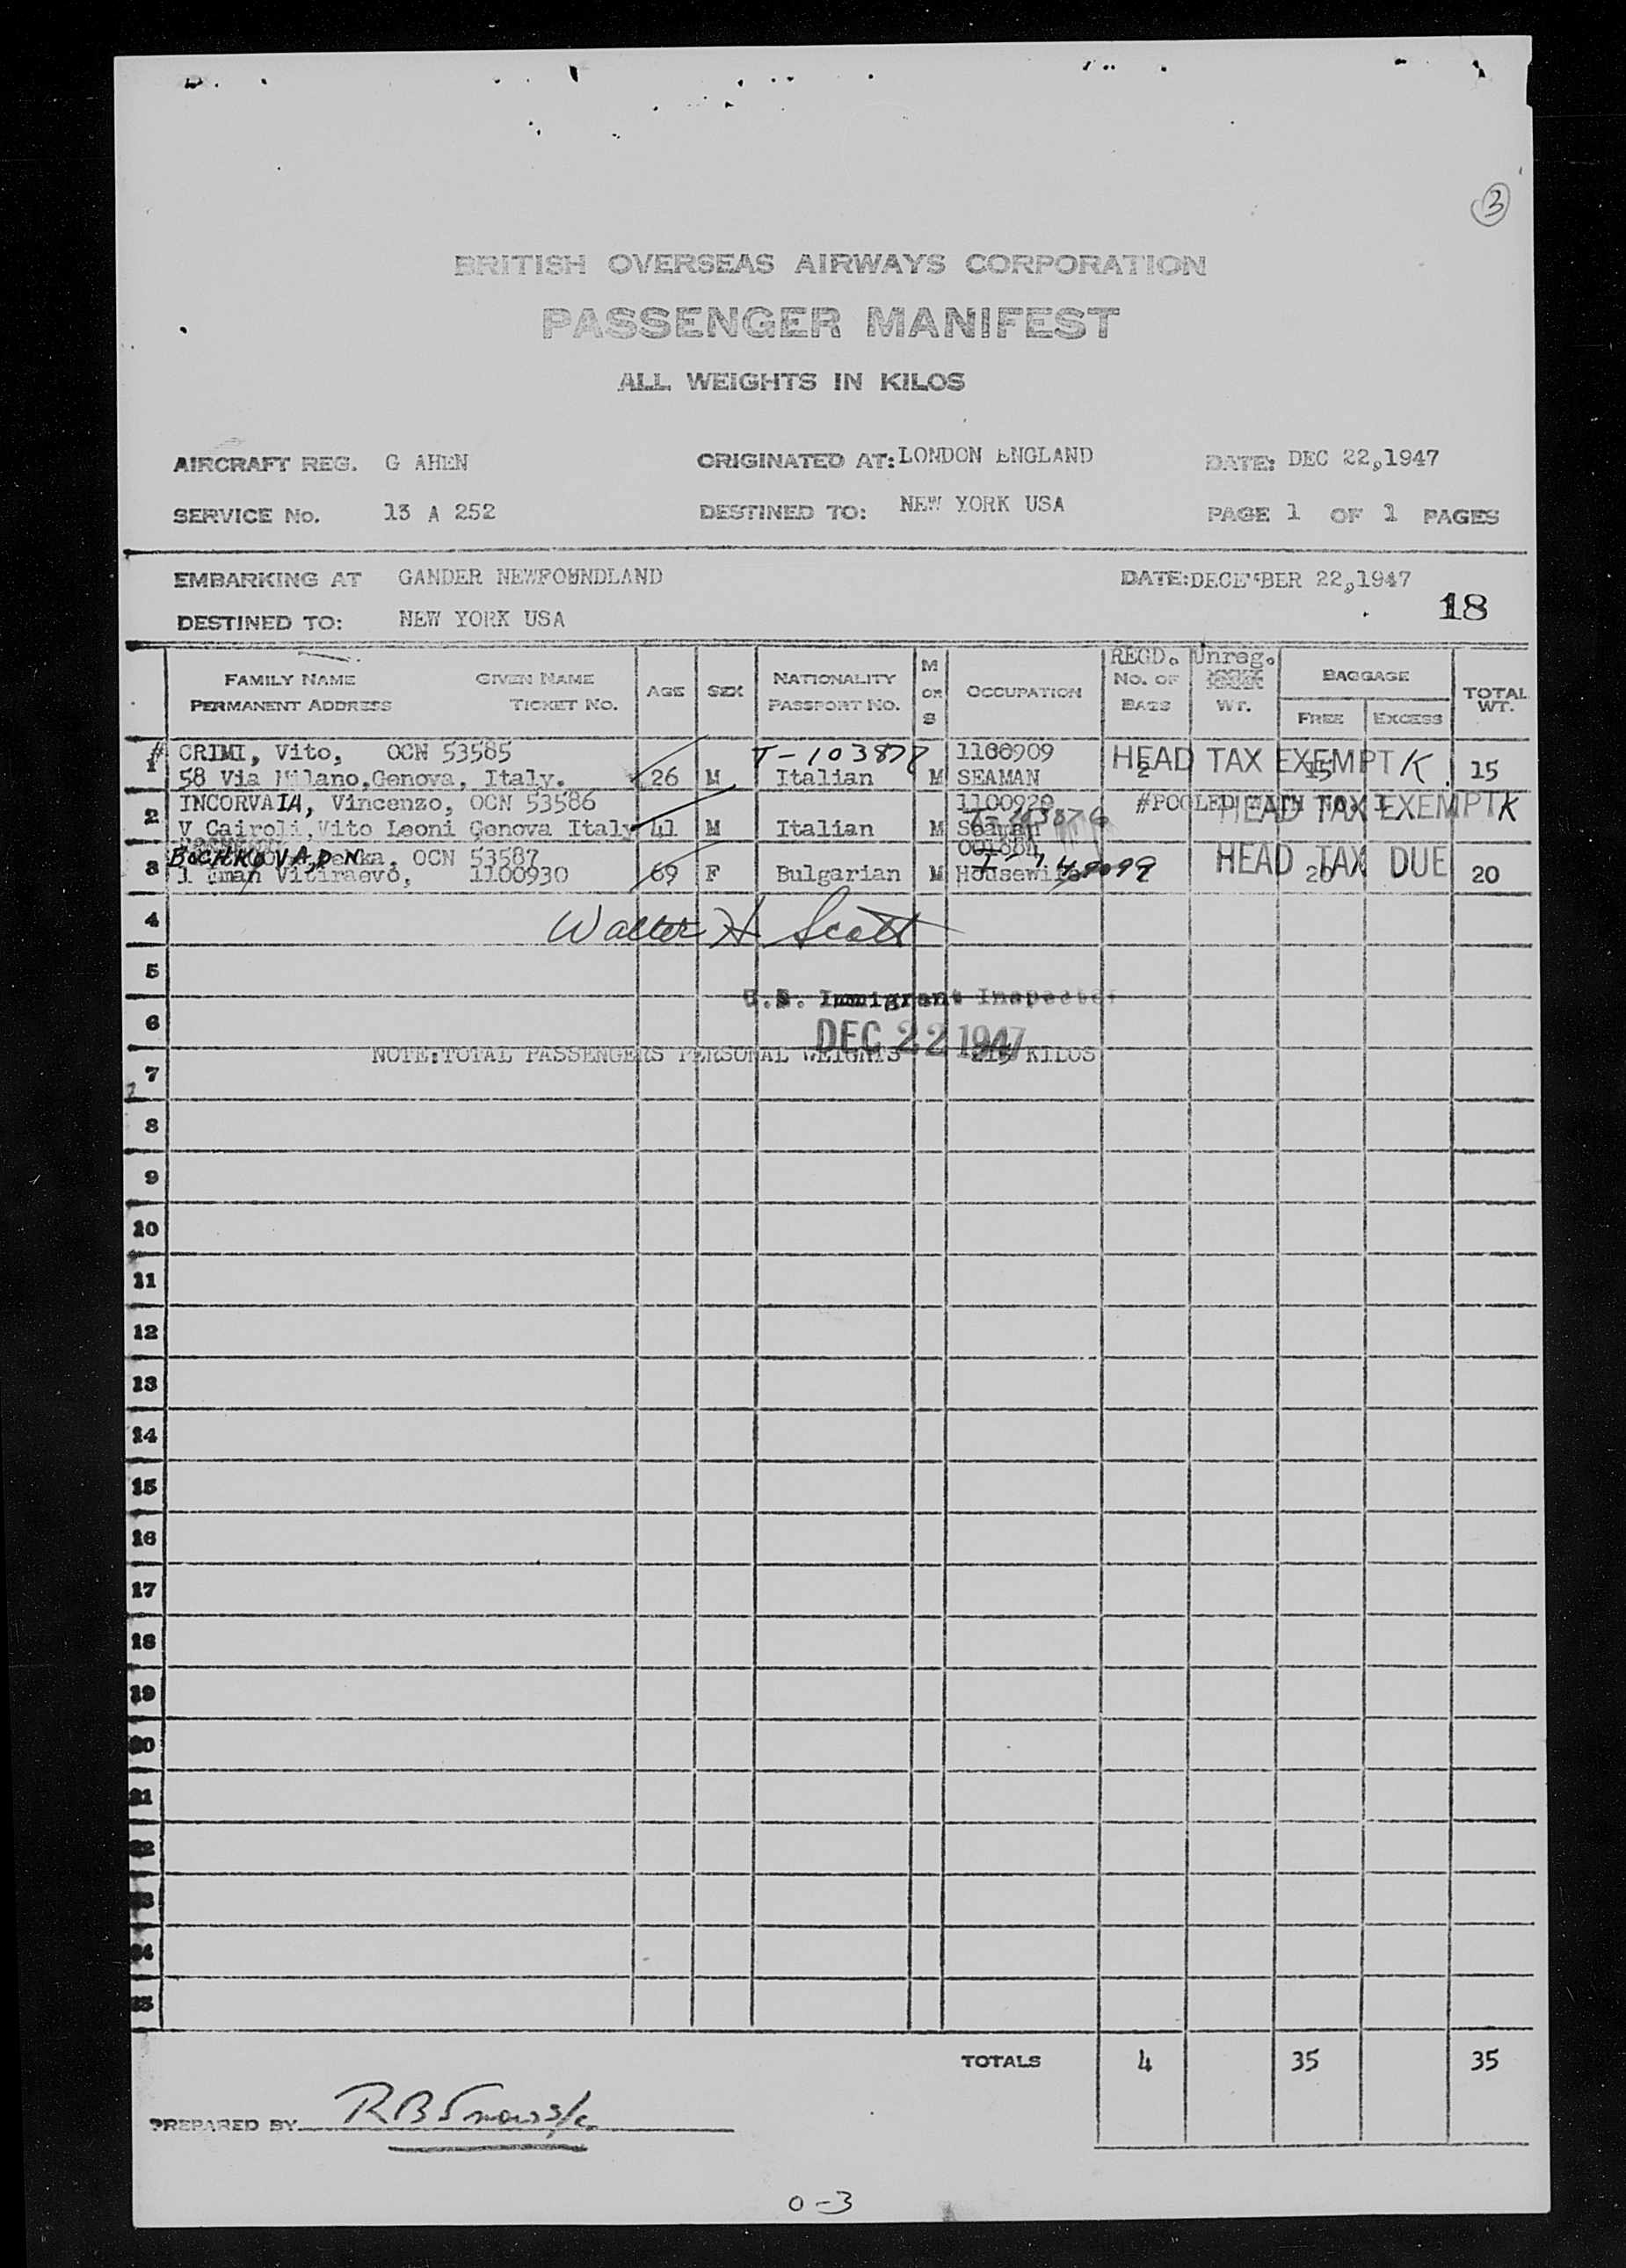 3
BRITISH OVERSEAS AIRWAYS CORPORATION
PASSENGER MANIFEST
ALL WEIGHTS IN KILOS
AIRCRAFT REG. G AHEN ORIGINATED AT: LONDON ENGLAND DATE: DEC 22,1947
SERVICE No. 13 A 252 DESTINED TO: NEW YORK USA PAGE 1 OF 1 PAGES
EMBARKING AT GANDER NEWFOUNDLAND DATE: DECEMBER 22,1947
18
DESTINED TO: NEW YORK USA
FAMILY NAME GIVEN NAME AGE SEX NATIONALITY M OR S OCCUPATION REGD. No. OF BAGS Unreg. WT. BAGGAGE TOTAL WT.
PERMANENT ADDRESS TICKET No. PASSPORT No. FREE EXCESS
# 1 CRIMI, Vito, OCN 53585 T-103877 1100909 HEAD TAX EXEMPT K
58 Via Milano,Genova, Italy. 26 M Italian M SEAMAN 2 15 15
2 INCORVAIA, Vincenzo, OCN 53586 1100920 #POOLED WITH NO. 1 HEAD TAX EXEMPT K
V Cairoli,Vito Leoni Genova Italy 41 M Italian M Seaman
3 BOCHKOVA, OCN 53587 HEAD TAX DUE
Vitiraevo, 1100930 69 F Bulgarian M Housewife 2 20 20
4
Walter H Scott
5
U.S. Immigrant Inspector
6
DEC 22 1947
NOTE:TOTAL PASSENGERS PERSONAL WEIGHTS KILOS
7
8
9
10
11
12
13
14
15
16
17
18
19
20
21
22
23
24
25
TOTALS 4 35 35
PREPARED BY
0-3